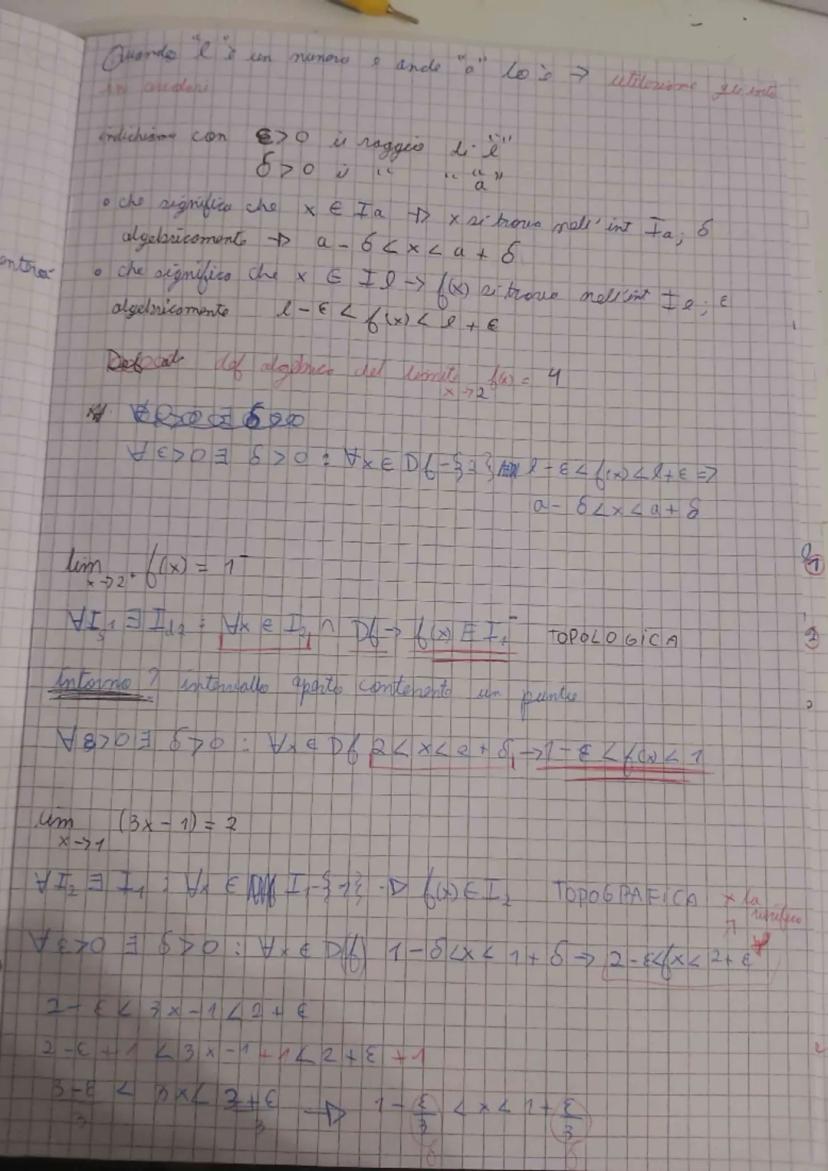 Quando "l" è un numero e anche "a" lo è → utilizziamo gli int
indichiamo con ε>0 il raggio di "l"
δ>0 il " " "a"
• che significa che x ∈ Ia → x si trova nell'int Ia; δ
algebricamente → a - δ < x < a + δ
• che significa che x ∈ Il → f(x) si trova nell'int Il; ε
algebricamente l - ε < f(x) < l + ε
def algebrica del limite x→2 f(x) = 4
∀ε>0 ∃ δ>0 : ∀x∈Df-{2} l-ε<f(x)<l+ε =>
a-δ<x<a+δ
lim x→2⁺ f(x) = 1⁻
∃ : ∀x ∈ ∩ Df → f(x) ∃ I₁⁻ TOPOLOGICA
Intorno? intervallo aperto contenente un punto
∀ε>0 ∃ δ>0 : ∀x∈Df 2<x<2+δ → 1-ε<f(x)<1
lim x→1 (3x-1) = 2
∀I₂ ∃ I₁ : ∀x ∈ I₁-{1} → f(x)∈I₂ TOPOGRAFICA x la
∀ε>0 ∃ δ>0 : ∀x∈D(f) 1-δ<x<1+δ → 2-ε<fx<2+ε
2-ε<3x-1<2+ε
2-ε+1<3x-1+1<2+ε+1
3-ε/3 < 3x < 3+ε/3 → 1-ε/3 < x < 1+ε/3
δ δ